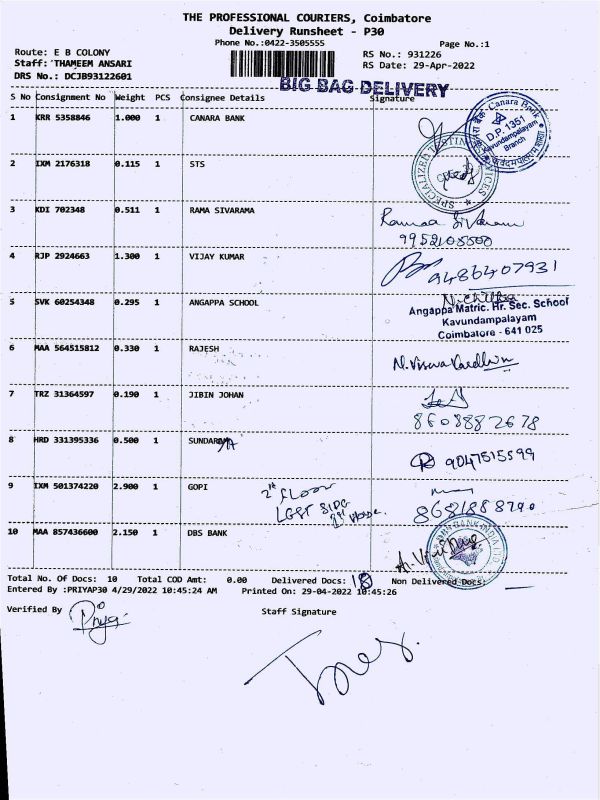 THE PROFESSIONAL COURIERS, Coimbatore
Delivery Runsheet - P30
Phone No.:0422-3505555
Page No.:1
Route: E B COLONY
RS No.: 931226
Staff: THAMEEM ANSARI
RS Date: 29-Apr-2022
DRS No.: DCJB93122601
BIG BAG DELIVERY
S No Consignment No Weight PCS Consignee Details Signature
1 KRR 5358846 1.000 1 CANARA BANK
Canara Bank
D.P. 1351
Kavundampalayam
Branch
2 IXM 2176318 0.115 1 STS
SPECIALIZED TESTING SERVICES
3 KDI 702348 0.511 1 RAMA SIVARAMA
4 RJP 2924663 1.300 1 VIJAY KUMAR
9486407931
5 SVK 60254348 0.295 1 ANGAPPA SCHOOL
Angappa Matric. Hr. Sec. School
Kavundampalayam
Coimbatore - 641 025
6 MAA 564515812 0.330 1 RAJESH
7 TRZ 31364597 0.190 1 JIBIN JOHAN
8608882678
8 HRD 331395336 0.500 1
9047515599
9 IXM 501374220 2.900 1 GOPI
2nd Floor
10 MAA 857436600 2.150 1 DBS BANK
DBS BANK INDIA LTD
Total No. Of Docs: 10 Total COD Amt: 0.00 Delivered Docs: Non Delivered Docs:
Entered By :PRIYAP30 4/29/2022 10:45:24 AM Printed On: 29-04-2022 10:45:26
Verified By Staff Signature
Priya